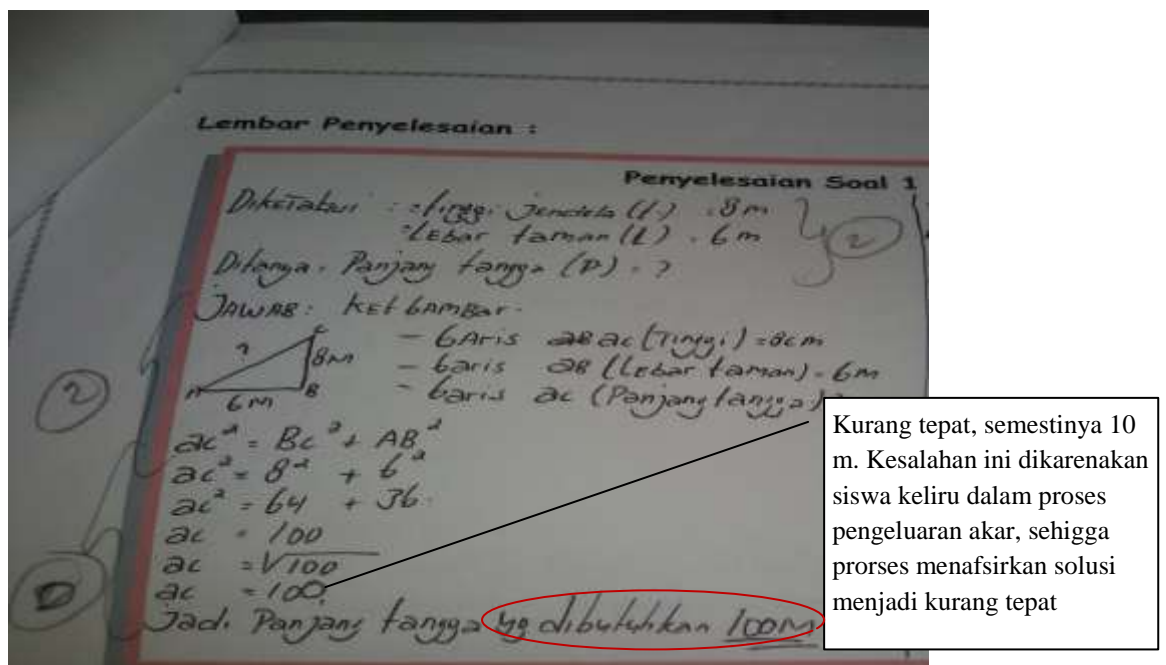 Lembar Penyelesaian :
Penyelesaian Soal 1
Diketahui : =tinggi Jendela (t) = 8 m
=LEbar taman (L) = 6 m
2
Ditanya = Panjang tangga (P) = ?
JAWAB : KET GAMBAr.
- GAris ac (Tinggi) = 8cm
- Garis aB (LEbar taman) = 6m
- Garis ac (Panjang tangga)
? C 8m
A 6m B
2
ac² = Bc² + AB²
ac² = 8² + 6²
ac² = 64 + 36
ac = 100
ac = √100
ac = 100
Jadi Panjang tangga yg dibutuhkan 100m
Kurang tepat, semestinya 10
m. Kesalahan ini dikarenakan
siswa keliru dalam proses
pengeluaran akar, sehigga
prorses menafsirkan solusi
menjadi kurang tepat